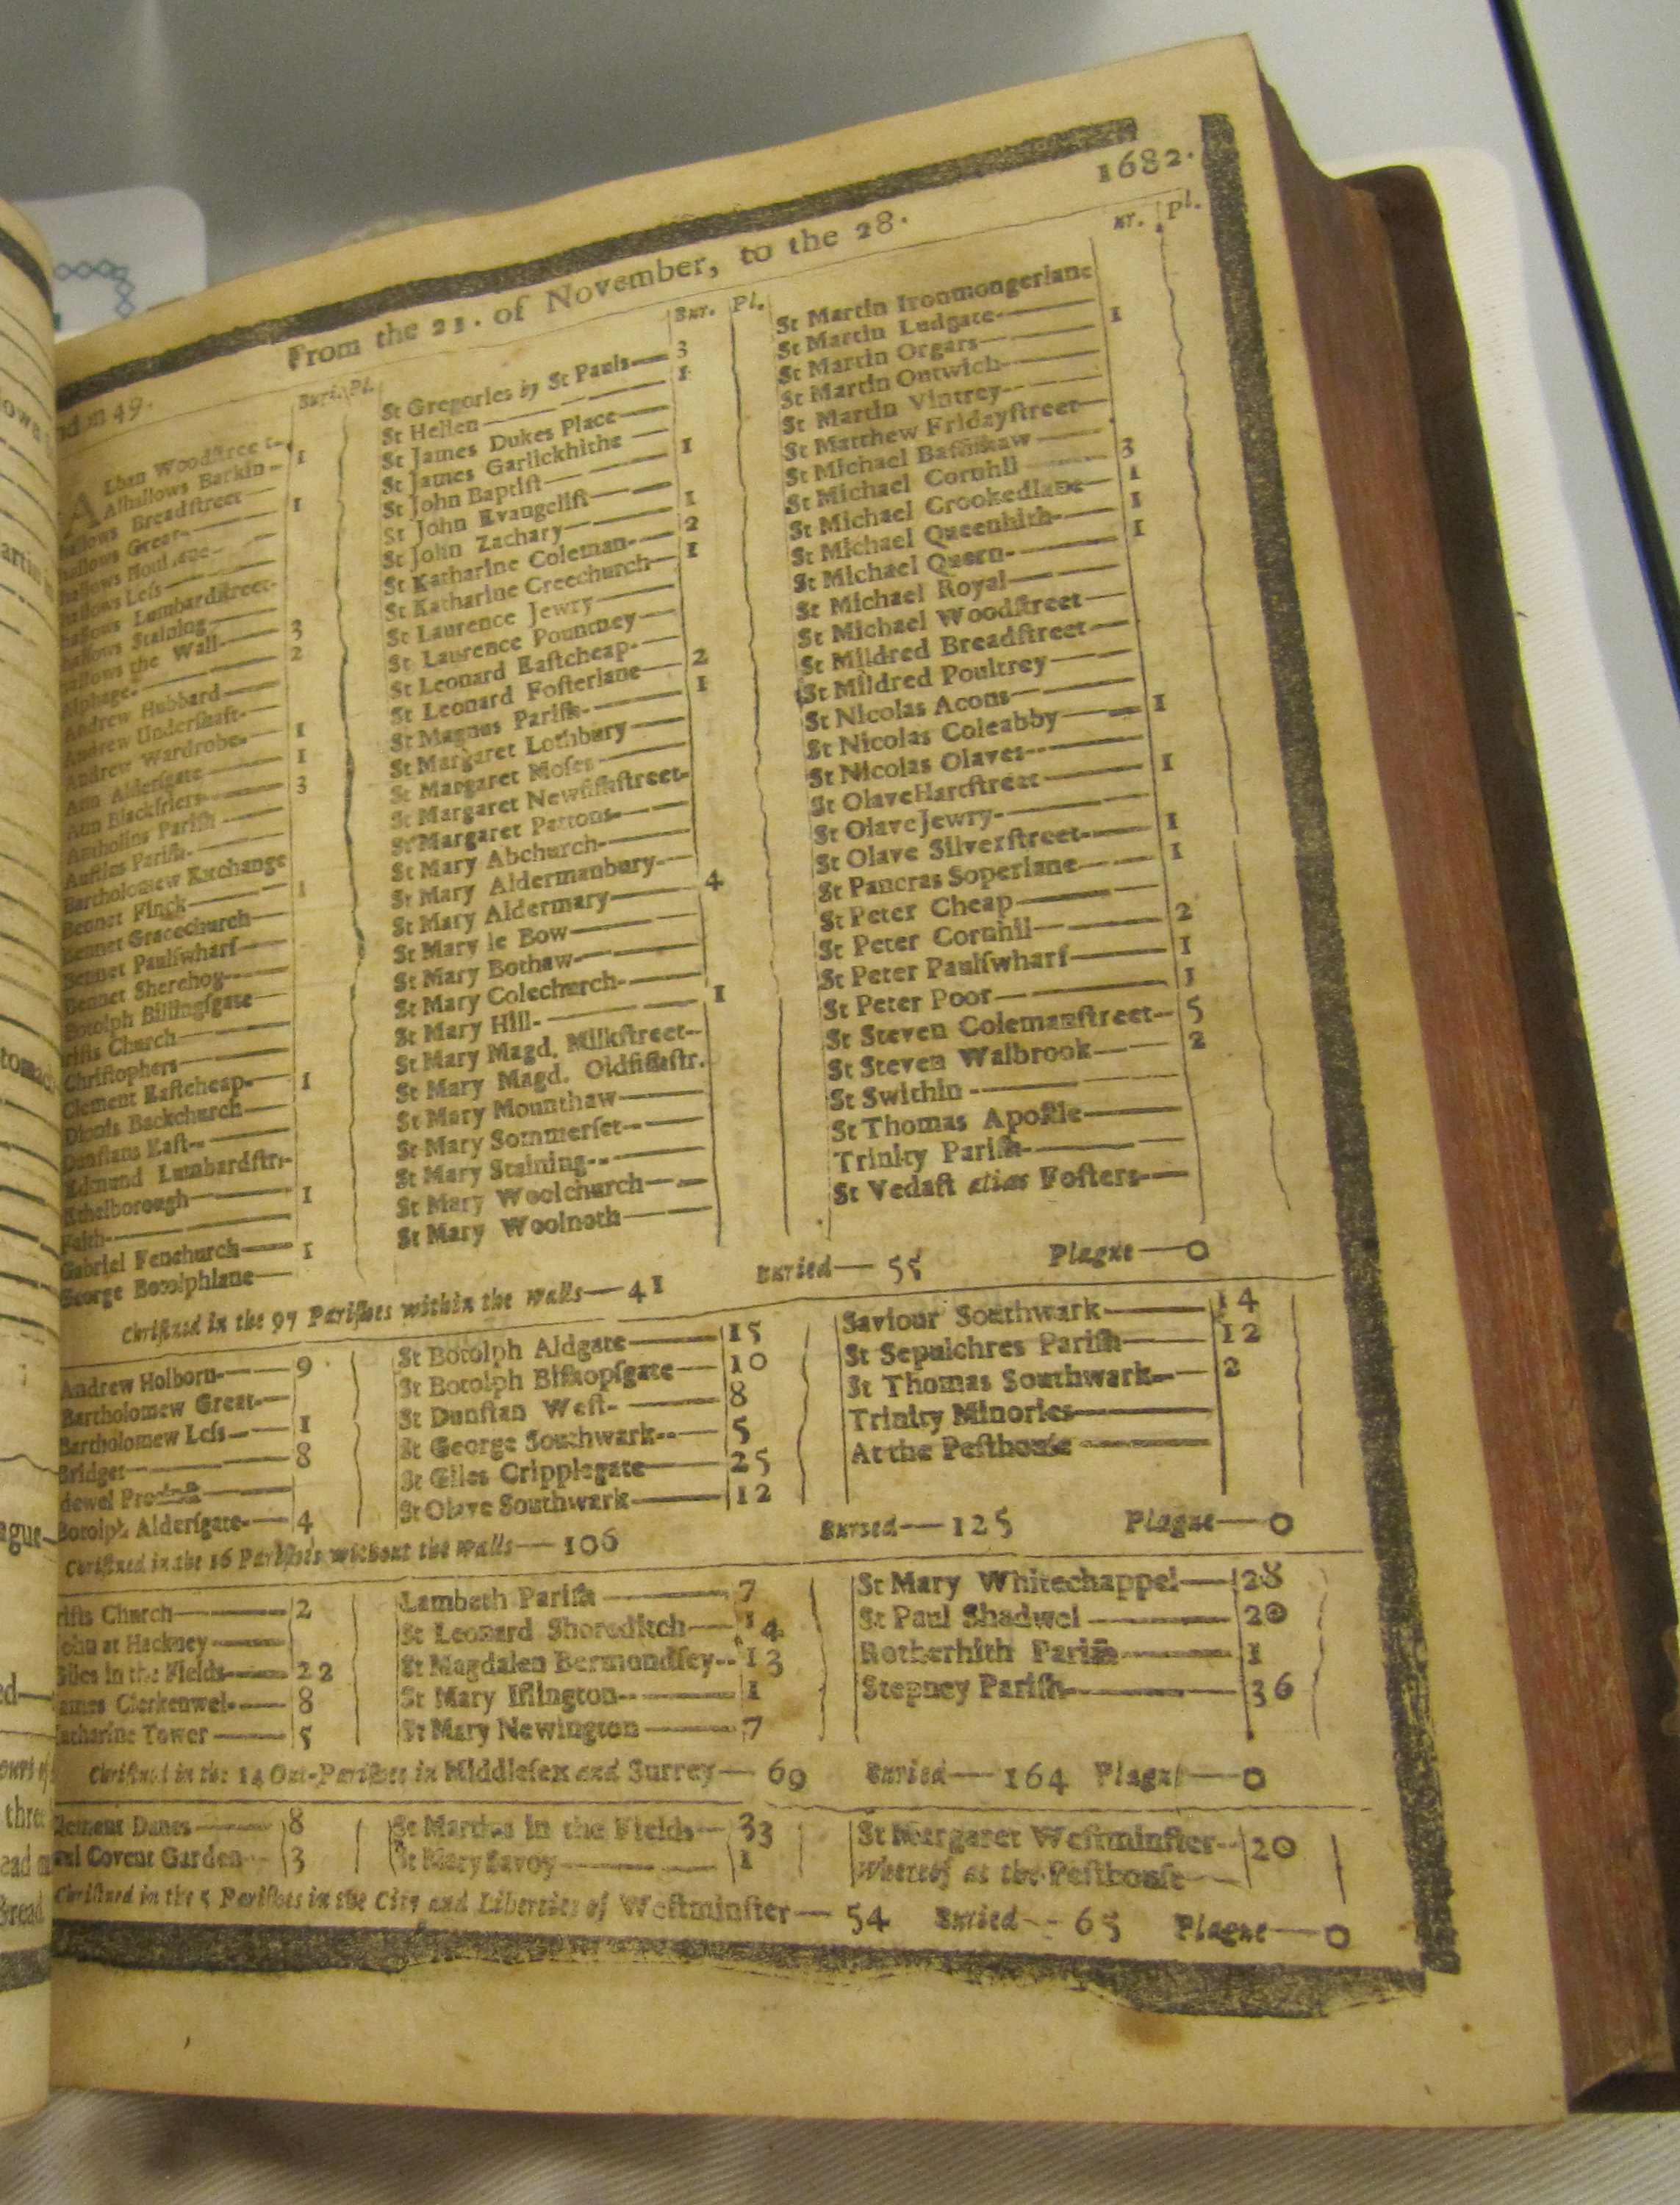 From the 21. of November, to the 28. 1682.
Buri. Pl.
Lban Woodstreet-
Alhallows Barkin - 1
Breadstreet
Great 1
Less
Lumbardstreet-
Staining
the Wall 3
Alphage 2
Andrew Hubbard
Andrew Undershaft-
Andrew Wardrobe 1
Ann Aldersgate 1
Ann Blackfriers 3
Antholins Parish
Austins Parish
Bartholomew Exchange
Bennet Finck 1
Bennet Gracechurch
Bennet Paulſwharf
Bennet Sherehog
Botolph Billingſgate
rists Church
Christophers
Clement Eastcheap 1
Dionis Backchurch
Dunstans East
Edmund Lumbardstr.
Ethelborough 1
Faith
Gabriel Fenchurch 1
George Botolphlane
Bur. Pl.
St Gregories by St Pauls 3
St Hellen 1
St James Dukes Place
St James Garlickhithe 1
St John Baptiſt
St John Evangeliſt 1
St John Zachary 2
St Katharine Coleman 1
St Katharine Creechurch
St Laurence Jewry
St Laurence Pountney
St Leonard Eaſtcheap 2
St Leonard Foſterlane 1
St Magnus Pariſh
St Margaret Lothbury
St Margaret Moſes
St Margaret Newfiſhſtreet
St Margaret Pattons
St Mary Abchurch
St Mary Aldermanbury 4
St Mary Aldermary
St Mary le Bow
St Mary Bothaw
St Mary Colechurch 1
St Mary Hill
St Mary Magd. Milkſtreet
St Mary Magd. Oldfiſhſtr.
St Mary Mounthaw
St Mary Sommerſet
St Mary Staining
St Mary Woolchurch
St Mary Woolnoth
Bur. Pl.
St Martin Ironmongerlane
St Martin Ludgate 1
St Martin Orgars
St Martin Outwich
St Martin Vintrey
St Matthew Fridayſtreet
St Michael Baſſiſhaw 3
St Michael Cornhil 1
St Michael Crookedlane 1
St Michael Queenhith 1
St Michael Quern
St Michael Royal
St Michael Woodſtreet
St Mildred Breadſtreet
St Mildred Poultrey
St Nicolas Acons 1
St Nicolas Coleabby
St Nicolas Olaves 1
St Olave Hartſtreet
St Olave Jewry 1
St Olave Silverſtreet 1
St Pancras Soperlane
St Peter Cheap 2
St Peter Cornhil 1
St Peter Paulſwharf 1
St Peter Poor
St Steven Colemanſtreet 5
St Steven Walbrook 2
St Swithin
St Thomas Apoſtle
Trinity Pariſh
St Vedaſt alias Foſters
Chriſtned in the 97 Pariſhes within the walls— 41 Buried— 55 Plague—0
Andrew Holborn 9
Bartholomew Great
Bartholomew Leſs 1
Bridget 8
Botolph Alderſgate 4
St Botolph Aldgate 15
St Botolph Biſhopſgate 10
St Dunſtan Weſt 8
St George Southwark 5
St Giles Cripplegate 25
St Olave Southwark 12
Saviour Southwark 14
St Sepulchres Pariſh 12
St Thomas Southwark 2
Trinity Minories
At the Peſthouſe
Chriſtned in the 16 Pariſhes without the walls— 106 Buried— 125 Plague—0
rists Church 2
John at Hackney
Giles in the Fields 22
James Clerkenwel 8
Katharine Tower 5
Lambeth Pariſh 7
St Leonard Shoreditch 14
St Magdalen Bermondſey 13
St Mary Iſlington 1
St Mary Newington 7
St Mary Whitechappel 28
St Paul Shadwel 20
Rotherhith Pariſh 1
Stepney Pariſh 36
Chriſtned in the 14 Out-Pariſhes in Middleſex and Surrey— 69 Buried— 164 Plague—0
Clement Danes 8
Covent Garden 3
St Martins in the Fields 33
St Mary Savoy 1
St Margaret Weſtminſter 20
Whereof at the Peſthouſe
Chriſtned in the 5 Pariſhes in the City and Liberties of Weſtminſter— 54 Buried— 65 Plague—0